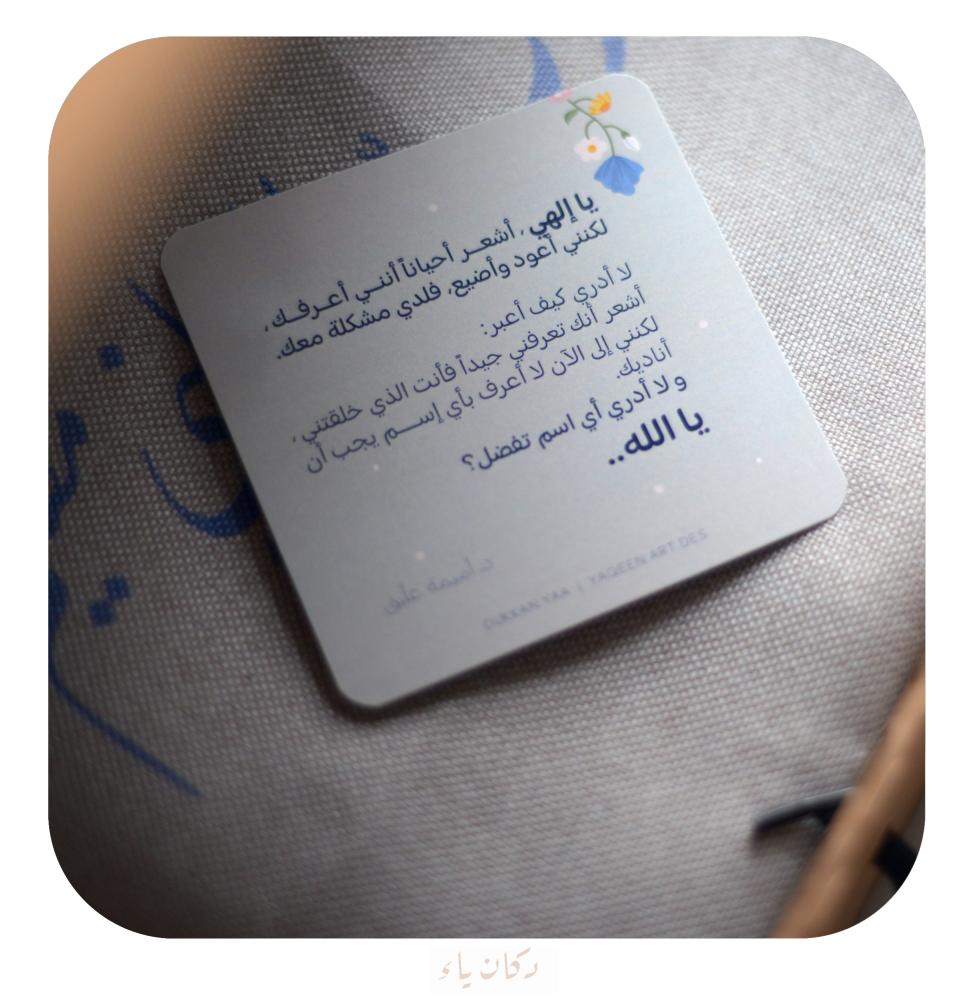 يا إلهي، أشعــر أحياناً أننــي أعــرفــك،
لكنني أعود وأضيع، فلدي مشكلة معك.
لا أدري كيف أعبر:
أشعر أنك تعرفني جيداً فأنت الذي خلقتني،
لكنني إلى الآن لا أعرف بأي إســم يجب أن
أناديك.
ولا أدري أي اسم تفضل؟
يا الله..
د. أميمة عليق
DUKKAN YAA | YAQEEN ART DES
دكان ياء